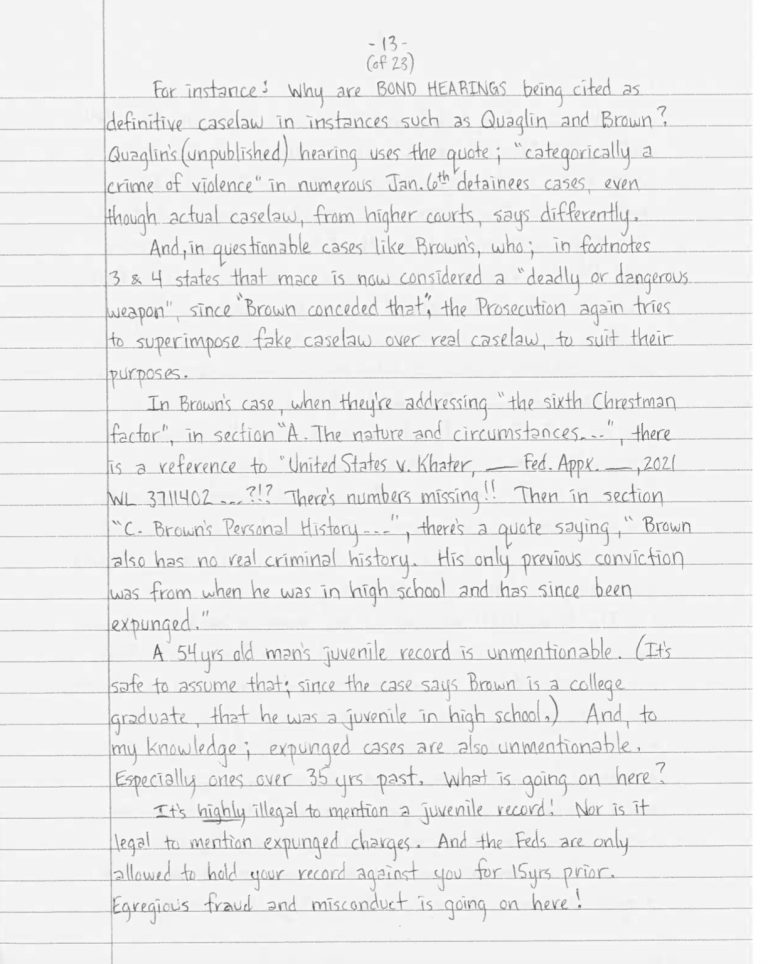 - 13 -
(of 23)
For instance: Why are BOND HEARINGS being cited as
definitive caselaw in instances such as Quaglin and Brown?
Quaglin's (unpublished) hearing uses the quote; "categorically a
crime of violence" in numerous Jan. 6th detainees cases, even
though actual caselaw, from higher courts, says differently.
And, in questionable cases like Brown's, who; in footnotes
3 & 4 states that mace is now considered a "deadly or dangerous
weapon", since "Brown conceded that", the Prosecution again tries
to superimpose fake caselaw over real caselaw, to suit their
purposes.
In Brown's case, when they're addressing "the sixth Chrestman
factor", in section "A. The nature and circumstances...", there
is a reference to "United States v. Khater, __ Fed. Appx. __, 2021
WL 3711402 ...?!? There's numbers missing!! Then in section
"C. Brown's Personal History ---", there's a quote saying, "Brown
also has no real criminal history. His only previous conviction
was from when he was in high school and has since been
expunged."
A 54yrs old man's juvenile record is unmentionable. (It's
safe to assume that; since the case says Brown is a college
graduate, that he was a juvenile in high school.) And, to
my knowledge; expunged cases are also unmentionable.
Especially ones over 35 yrs past. What is going on here?
It's highly illegal to mention a juvenile record! Nor is it
legal to mention expunged charges. And the Feds are only
allowed to hold your record against you for 15yrs prior.
Egregious fraud and misconduct is going on here!